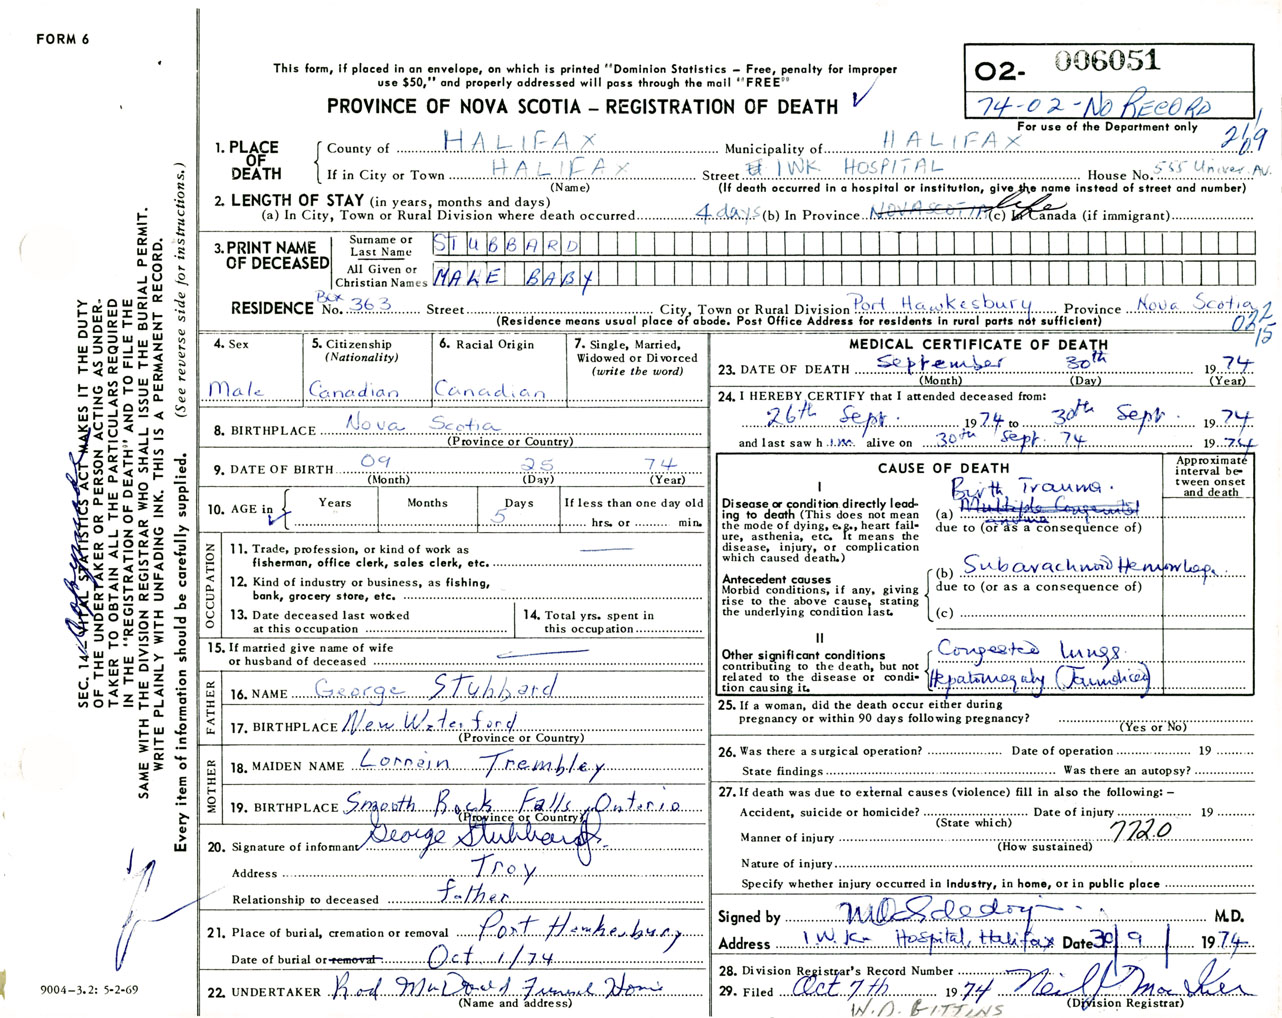 FORM 6
This form, if placed in an envelope, on which is printed "Dominion Statistics – Free, penalty for improper
use $50," and properly addressed will pass through the mail "FREE"
PROVINCE OF NOVA SCOTIA – REGISTRATION OF DEATH
O2- 006051
74-02-NO RECORD
For use of the Department only
1. PLACE OF DEATH
County of HALIFAX Municipality of HALIFAX
If in City or Town HALIFAX Street IWK HOSPITAL House No. 555 Univer. Av.
(Name) (If death occurred in a hospital or institution, give the name instead of street and number)
2. LENGTH OF STAY (in years, months and days)
(a) In City, Town or Rural Division where death occurred 4 days (b) In Province NOVA SCOTIA life (c) In Canada (if immigrant)
3. PRINT NAME OF DECEASED
Surname or Last Name STUBBARD
All Given or Christian Names MALE BABY
RESIDENCE No. Box 363 Street City, Town or Rural Division Port Hawkesbury Province Nova Scotia
(Residence means usual place of abode. Post Office Address for residents in rural parts not sufficient)
022
15
4. Sex
Male
5. Citizenship
(Nationality)
Canadian
6. Racial Origin
Canadian
7. Single, Married,
Widowed or Divorced
(write the word)
8. BIRTHPLACE Nova Scotia
(Province or Country)
9. DATE OF BIRTH 09 25 74
(Month) (Day) (Year)
10. AGE in Years Months Days If less than one day old
5 hrs. or min.
OCCUPATION
11. Trade, profession, or kind of work as
fisherman, office clerk, sales clerk, etc.
12. Kind of industry or business, as fishing,
bank, grocery store, etc.
13. Date deceased last worked
at this occupation
14. Total yrs. spent in
this occupation
15. If married give name of wife
or husband of deceased
FATHER
16. NAME George Stubbard
17. BIRTHPLACE New Waterford
(Province or Country)
MOTHER
18. MAIDEN NAME Lorrain Trembley
19. BIRTHPLACE Smooth Rock Falls, Ontario
(Province or Country)
20. Signature of informant George Stubbard
Address Troy
Relationship to deceased father
21. Place of burial, cremation or removal Port Hawkesbury
Date of burial or removal Oct 1/74
22. UNDERTAKER Rod MacDonald Funeral Home
(Name and address)
MEDICAL CERTIFICATE OF DEATH
23. DATE OF DEATH September 30th 1974
(Month) (Day) (Year)
24. I HEREBY CERTIFY that I attended deceased from:
26th Sept. 1974 to 30th Sept. 1974
and last saw h im alive on 30th Sept. 74 1974
CAUSE OF DEATH
Approximate
interval be-
tween onset
and death
I
Disease or condition directly lead-
ing to death (This does not mean
the mode of dying, e.g., heart fail-
ure, asthenia, etc. It means the
disease, injury, or complication
which caused death.)
Birth Trauma.
(a) Multiple Congenital
due to (or as a consequence of)
Antecedent causes
Morbid conditions, if any, giving
rise to the above cause, stating
the underlying condition last.
(b) Subarachnoid Hemorrhage
due to (or as a consequence of)
(c)
II
Other significant conditions
contributing to the death, but not
related to the disease or condi-
tion causing it.
Congested lungs.
Hepatomegaly (Jaundiced)
25. If a woman, did the death occur either during
pregnancy or within 90 days following pregnancy?
(Yes or No)
26. Was there a surgical operation? Date of operation 19
State findings Was there an autopsy?
27. If death was due to external causes (violence) fill in also the following: –
Accident, suicide or homicide? Date of injury 19
(State which)
Manner of injury 7720
(How sustained)
Nature of injury
Specify whether injury occurred in industry, in home, or in public place
Signed by M.D.
Address IWK Hospital, Halifax Date 30/9/ 1974
28. Division Registrar's Record Number
29. Filed Oct 7th 1974
(Division Registrar)
W.D. GITTINS
SEC. 14 – VITAL STATISTICS ACT MAKES IT THE DUTY
OF THE UNDERTAKER OR PERSON ACTING AS UNDER-
TAKER TO OBTAIN ALL THE PARTICULARS REQUIRED
IN THE "REGISTRATION OF DEATH" AND TO FILE THE
SAME WITH THE DIVISION REGISTRAR WHO SHALL ISSUE THE BURIAL PERMIT.
WRITE PLAINLY WITH UNFADING INK. THIS IS A PERMANENT RECORD.
Every item of information should be carefully supplied. (See reverse side for instructions.)
9004–3.2: 5-2-69